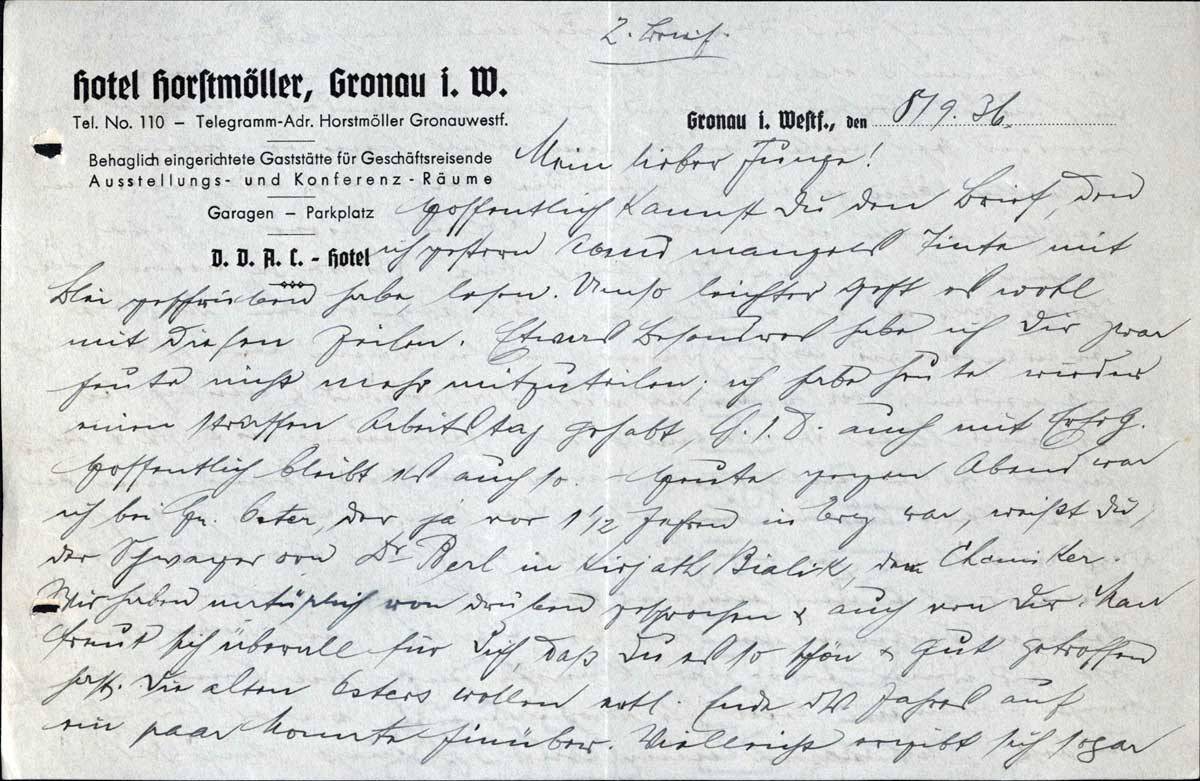 2. Brief.
Hotel Horstmöller, Gronau i. W.
Tel. No. 110 – Telegramm-Adr. Horstmöller Gronauwestf.
Gronau i. Westf., den 8/9. 36.
Behaglich eingerichtete Gaststätte für Geschäftsreisende
Ausstellungs- und Konferenz-Räume
Garagen – Parkplatz
D. D. A. C. - Hotel
Mein lieber Junge!
Hoffentlich kannst Du den Brief, den
ich gestern Abend mangels Tinte mit
Blei geschrieben habe lesen. Umso leichter geht es wohl
mit diesen Zeilen. Etwas Besonderes habe ich Dir zwar
heute nicht mehr mitzuteilen; ich habe heute wieder
einen straffen Arbeitstag gehabt, G. s. D. auch mit Erfolg.
Hoffentlich bleibt es auch so. – Heute gegen Abend war
ich bei Hr. Oster, der ja vor 1 1/2 Jahren in Erez war, weißt Du,
der Schwager von Dr Berl in Kirjath Bialik, dem Chemiker.
Wir haben natürlich von drüben gesprochen & auch von Dir. Man
freut sich überall für Dich, daß Du es so schön & gut getroffen
hast. Die alten Osters wollen evtl. Ende des Jahres auf
ein paar Monate hinüber. Vielleicht ergibt sich sogar